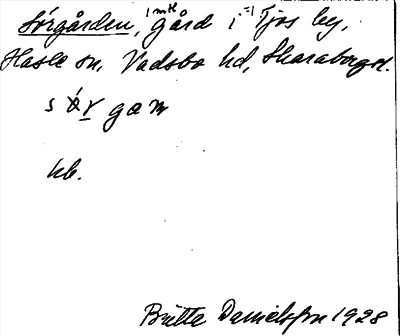 Sörgården, 1 mtl gård i Tjos by,
Hassle sn, Vadsbo hd, Skaraborgs l.
kb.
Britta Danielsson 1928